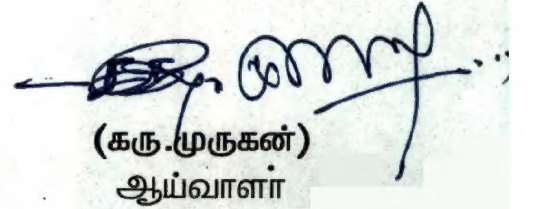 (கரு.முருகன்)
ஆய்வாளர்